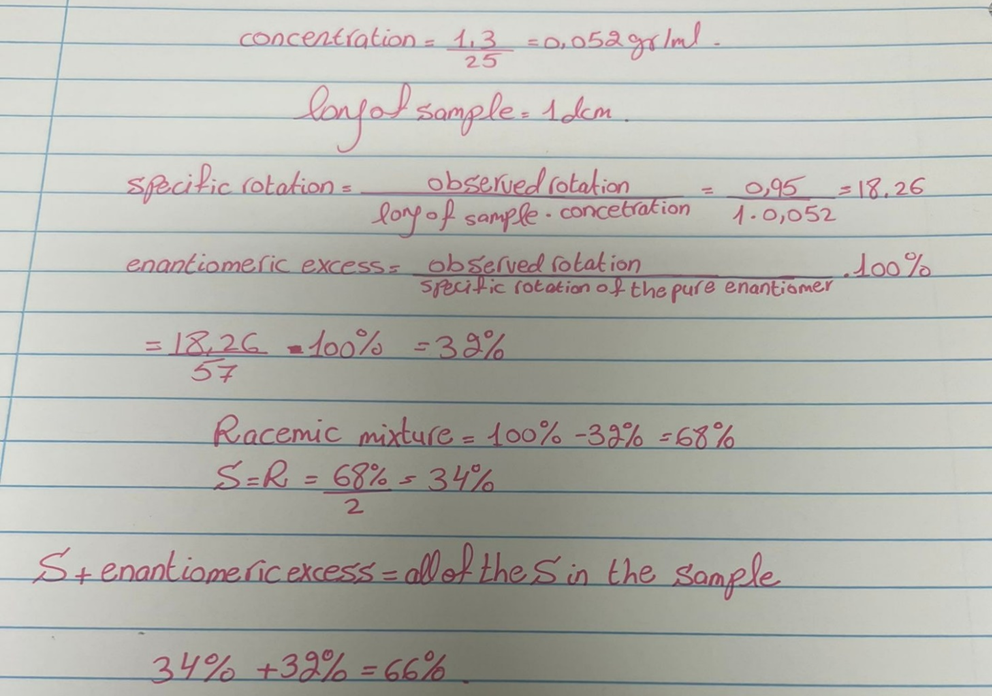 concentration = 1,3 / 25 = 0,052 gr/ml.
long of sample = 1 dcm.
specific rotation = observed rotation / long of sample . concetration = 0,95 / 1 . 0,052 = 18.26
enantiomeric excess = observed rotation / specific rotation of the pure enantiomer . 100%
= 18,26 / 57 . 100% = 32%
Racemic mixture = 100% - 32% = 68%
S = R = 68% / 2 = 34%
S + enantiomeric excess = all of the S in the sample
34% + 32% = 66%.